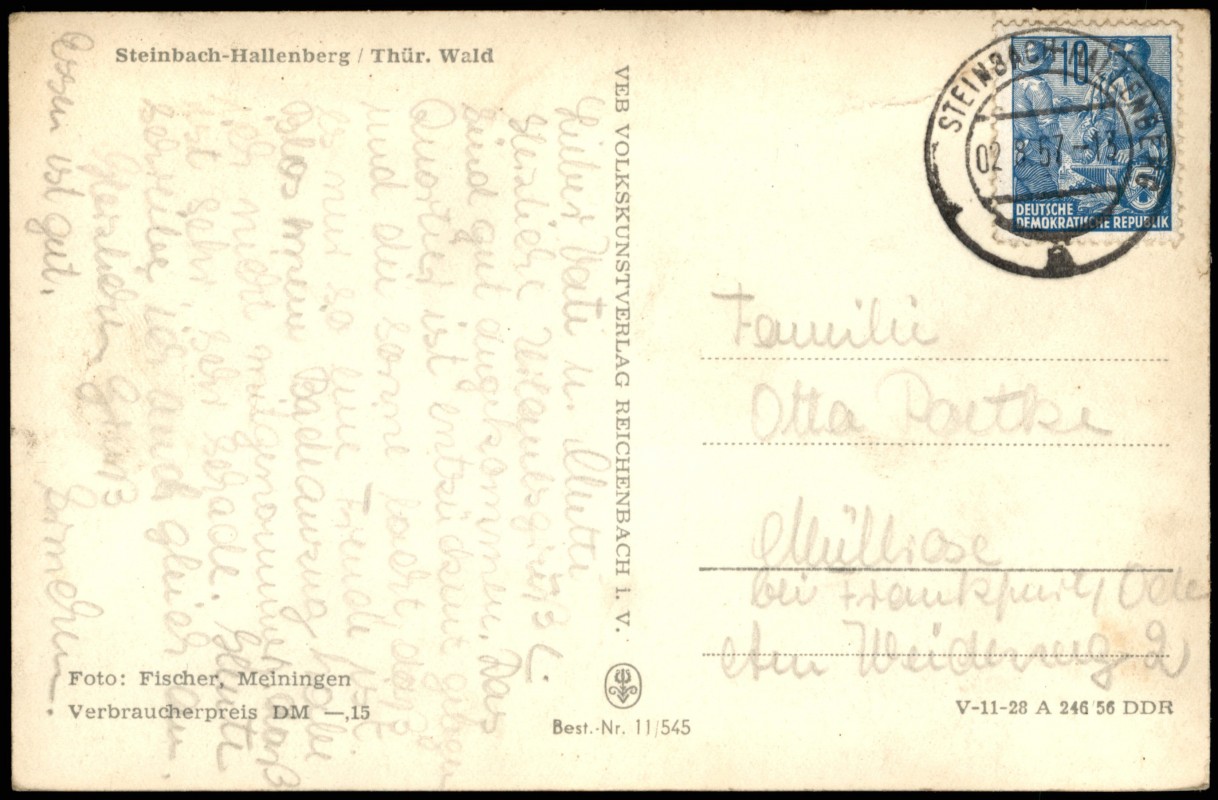 Steinbach-Hallenberg / Thür. Wald
Lieber Vati u. Mutti
Herzliche Urlaubsgrüße
sind gut angekommen. Das
Quartier ist entzückend gelegen
und die Sonne lacht daß
es nur so eine Freude ist.
Blos meinen Badeanzug habe
ich nicht mitgenommen das
ist sehr, sehr schade. Heute
schreibe ich auch gleich an
Herzlichen Gruß
Essen ist gut.
VEB VOLKSKUNSTVERLAG REICHENBACH i. V.
STEINBACH-HALLENBERG
02.8.57
10
DEUTSCHE
DEMOKRATISCHE REPUBLIK
Familie
Otto
Müllrose
bei Frankfurt/Oder
Am Weiderweg 2
Foto: Fischer, Meiningen
Verbraucherpreis DM —,15
Best.-Nr. 11/545
V-11-28 A 246/56 DDR